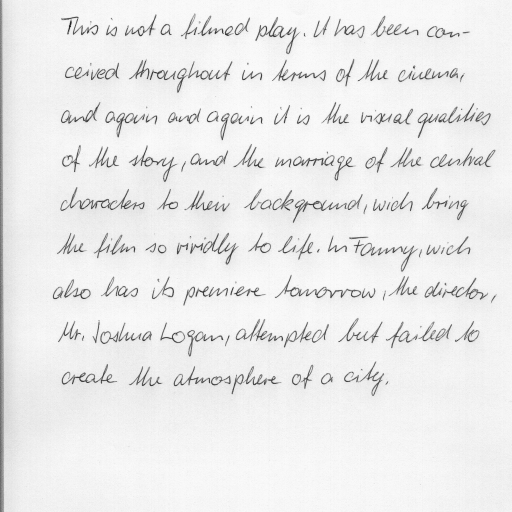 This is not a filmed play. It has been con-
ceived throughout in terms of the cinema,
and again and again it is the visual qualities
of the story, and the marriage of the central
characters to their background, wich bring
the film so vividly to life. In Fanny, wich
also has its premiere tomorrow, the director,
Mr. Joshua Logan, attempted but failed to
create the atmosphere of a city.